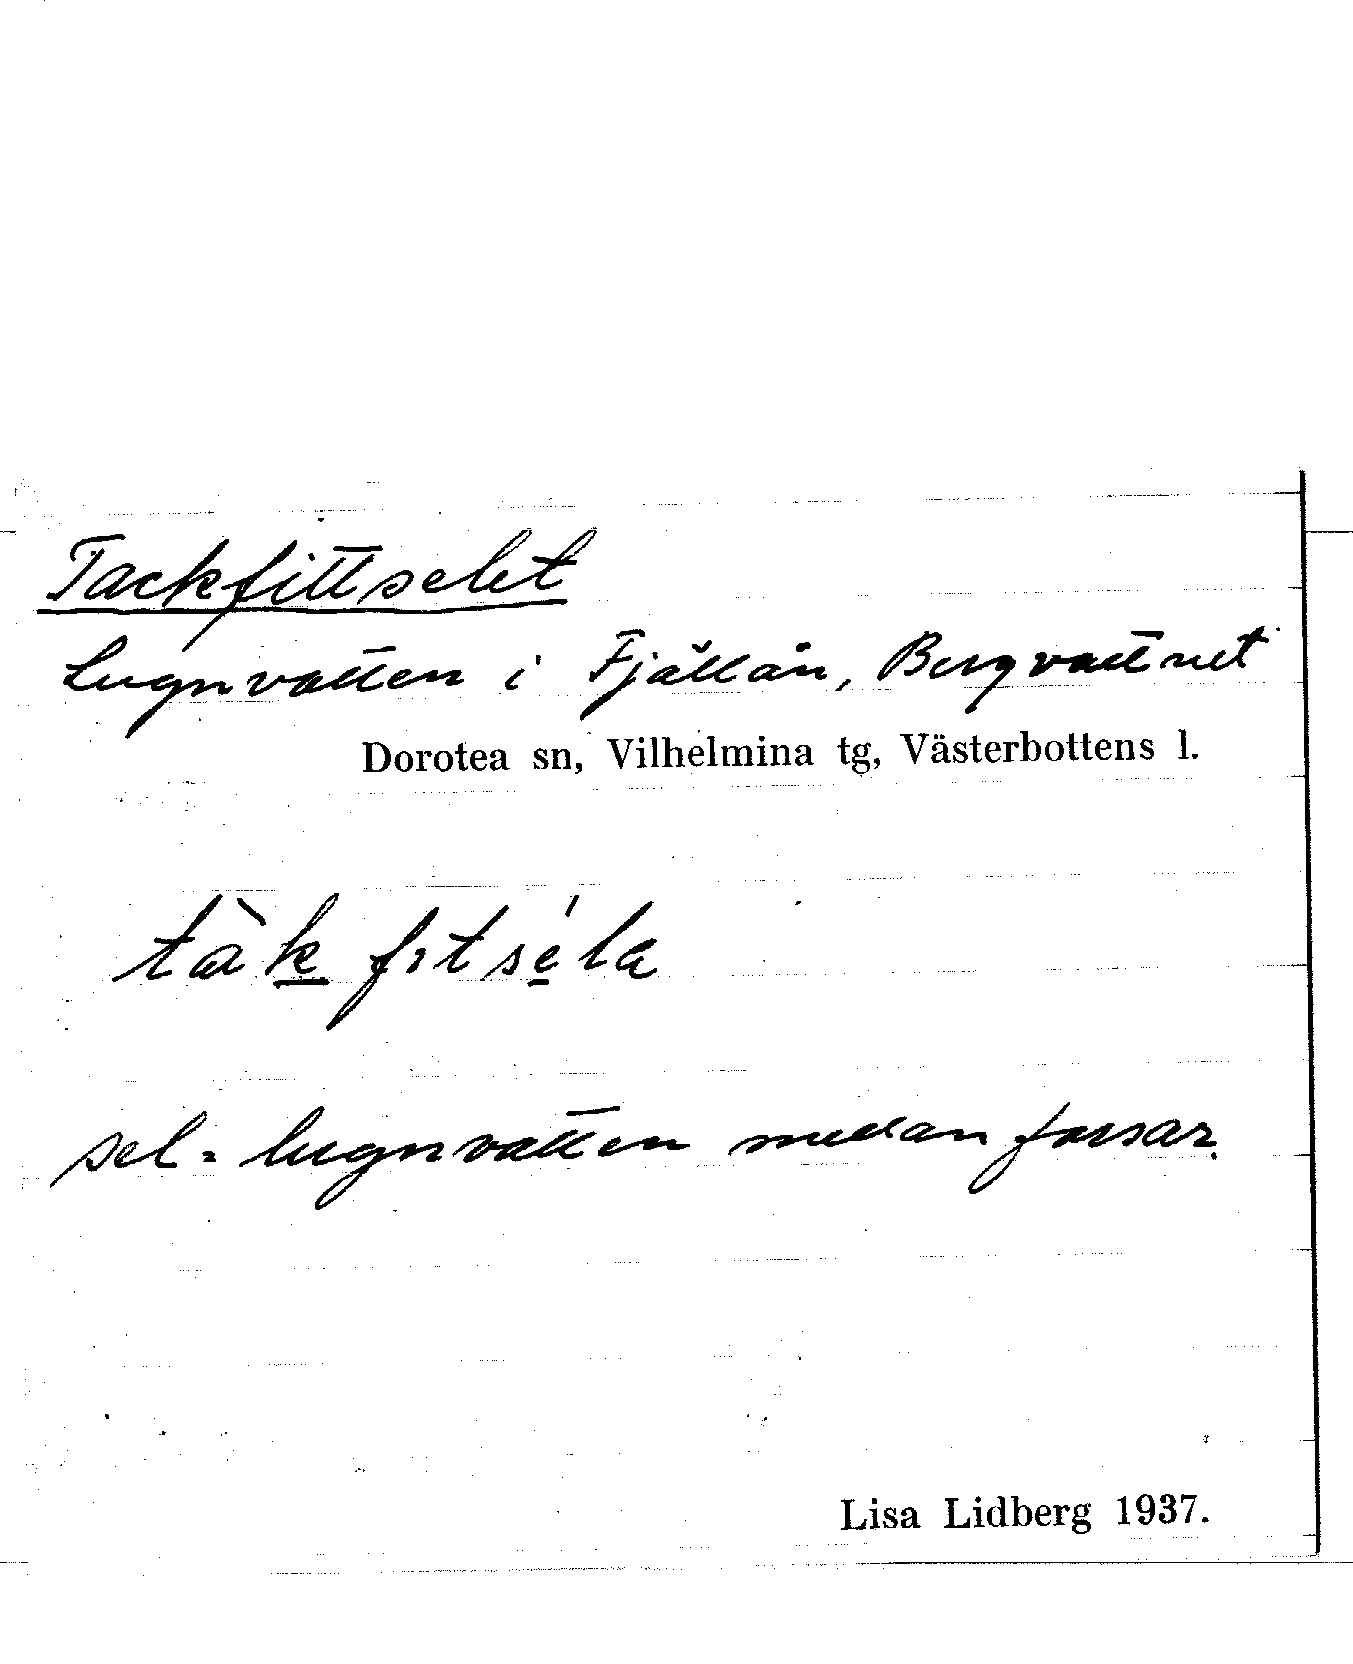 Tackfittselet
Lugnvatten i Fjällån, Bergvattnet
Dorotea sn, Vilhelmina tg, Västerbottens l.
tàk fıtséla
sel = lugnvatten mellan forsar.
Lisa Lidberg 1937.